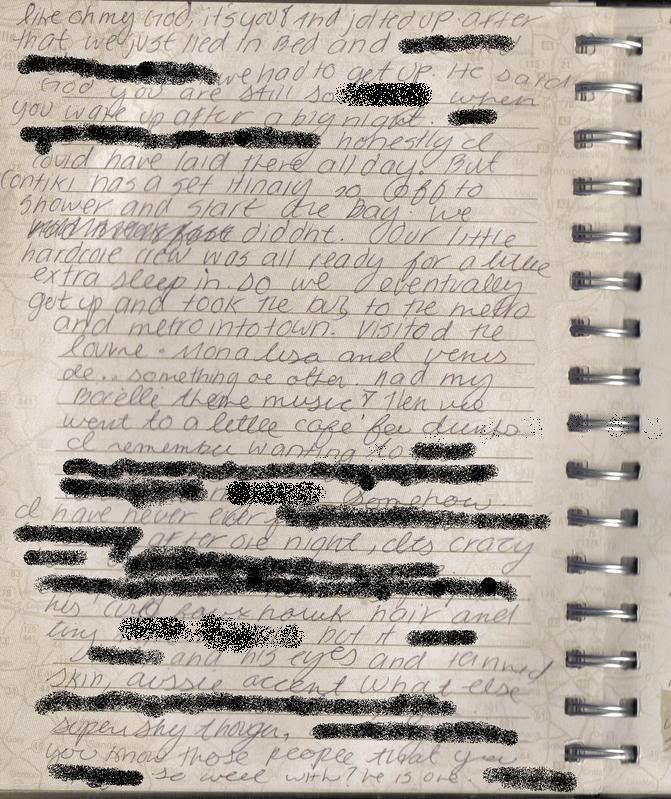 like oh my God, it's you? And jolted up. After
that we just lied in bed and
we had to get up. He said
God you are still so when
you wake up after a big night.
honestly I
could have laid there all day. But
Contiki has a set itinairy so off to
shower and start the day. We
didnt. Our little
hardcore crew was all ready for a little
extra sleep in. So we eventually
get up and took the bus to the metro
and metro into town. Visited the
louvre. Mona Lisa and venus
de.. something or other. had my
Bocelle theme music? Then we
went to a little café for
I remember wanting to
Somehow
I have never ever
after one night, its crazy
his faux hawk hair and
tiny but it
and his eyes and tanned
skin, aussie accent what else
super shy though,
you know those people that you
so well with? he is one.